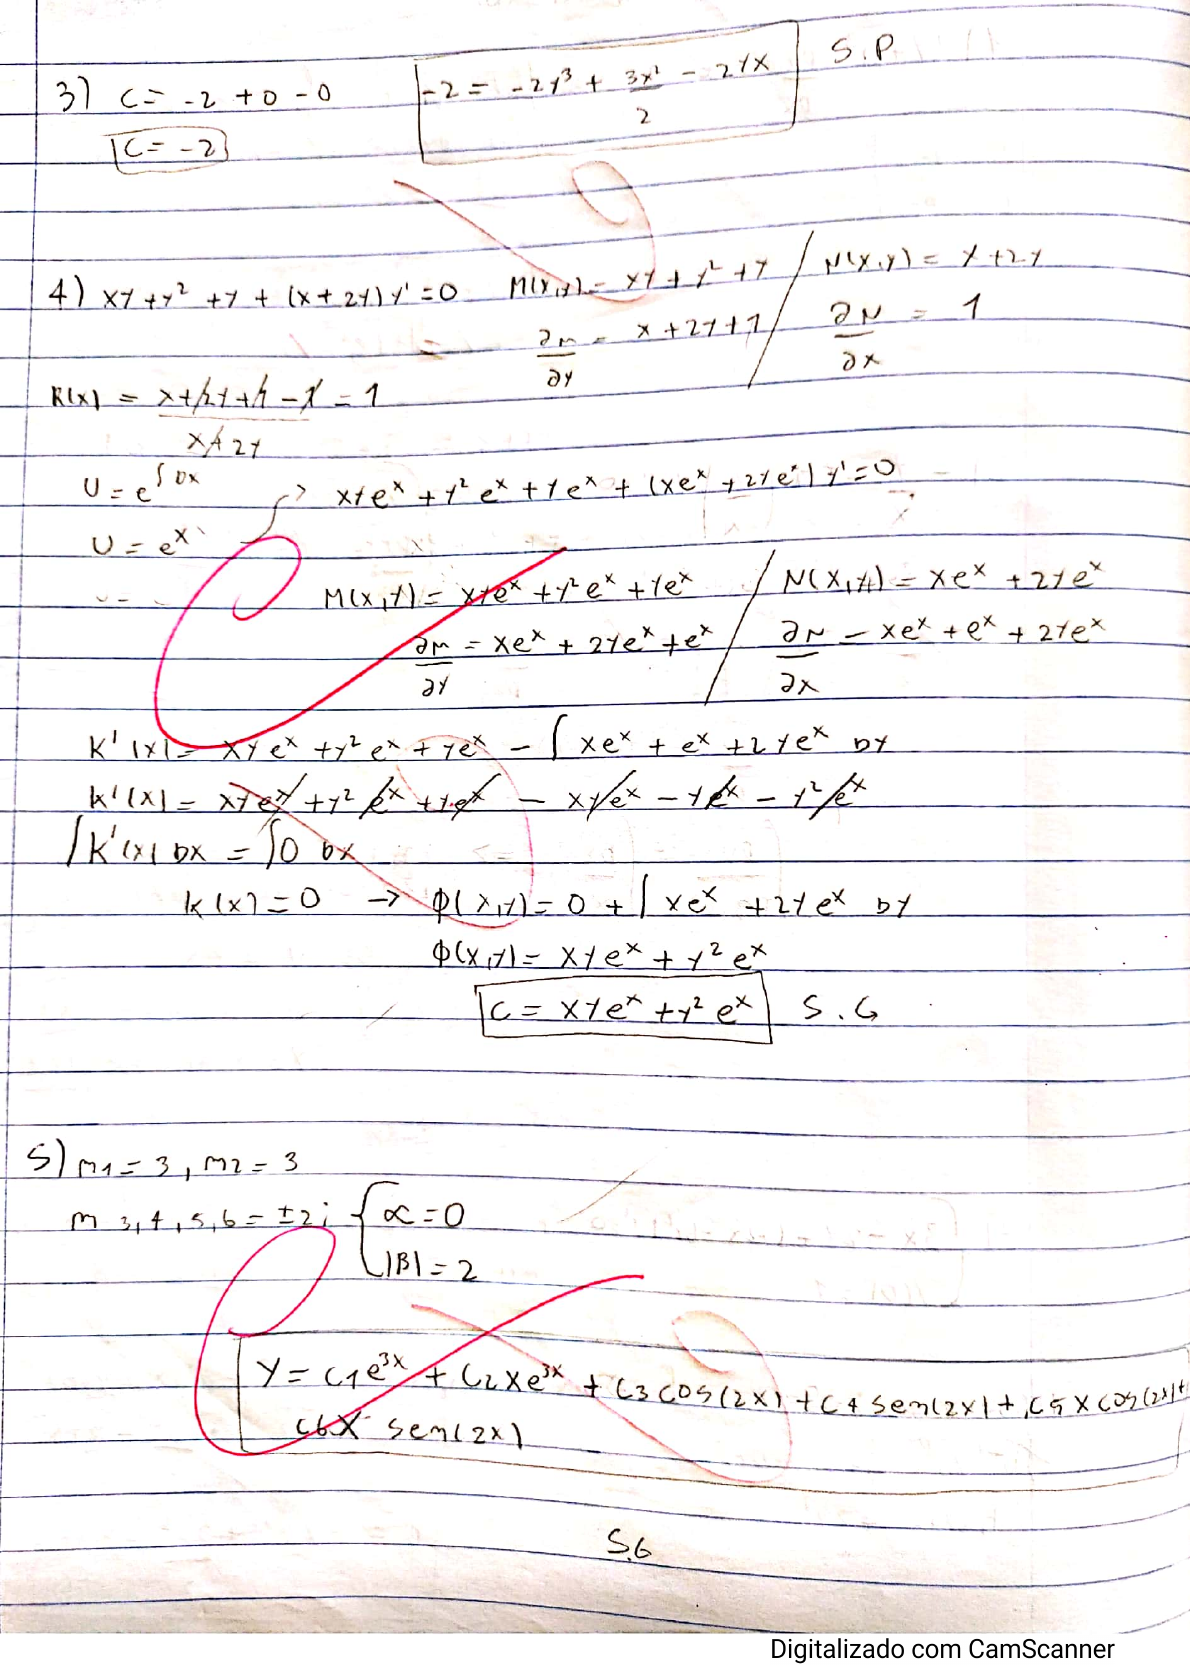 3) C = -2 + 0 - 0    -2 = -2y³ + 3x²/2 - 2yx    S.P
C = -2
4) xy + y² + y + (x + 2y) y' = 0    M(x,y) = xy + y² + y / N(x,y) = x + 2y
∂M/∂y = x + 2y + 1 / ∂N/∂x = 1
R(x) = (x + 2y + 1 - 1)/(x + 2y) = 1
U = e^∫Dx → xye^x + y²e^x + ye^x + (xe^x + 2ye^x) y' = 0
U = e^x
M(x,y) = xye^x + y²e^x + ye^x / N(x,y) = xe^x + 2ye^x
∂M/∂y = xe^x + 2ye^x + e^x / ∂N/∂x = xe^x + e^x + 2ye^x
K'(x) = xye^x + y²e^x + ye^x - ∫ xe^x + e^x + 2ye^x Dy
K'(x) = xye^x + y²e^x + ye^x - xye^x - ye^x - y²e^x
∫K'(x) Dx = ∫0 Dx
K(x) = 0 → Φ(x,y) = 0 + ∫ xe^x + 2ye^x Dy
Φ(x,y) = xye^x + y²e^x
C = xye^x + y²e^x    S.G
5) m1 = 3, m2 = 3
m 3,4,5,6 = ±2i { α = 0
|B| = 2
Y = C1e^3x + C2xe^3x + C3cos(2x) + C4sen(2x) + C5xcos(2x) +
C6x sen(2x)
S.G
Digitalizado com CamScanner